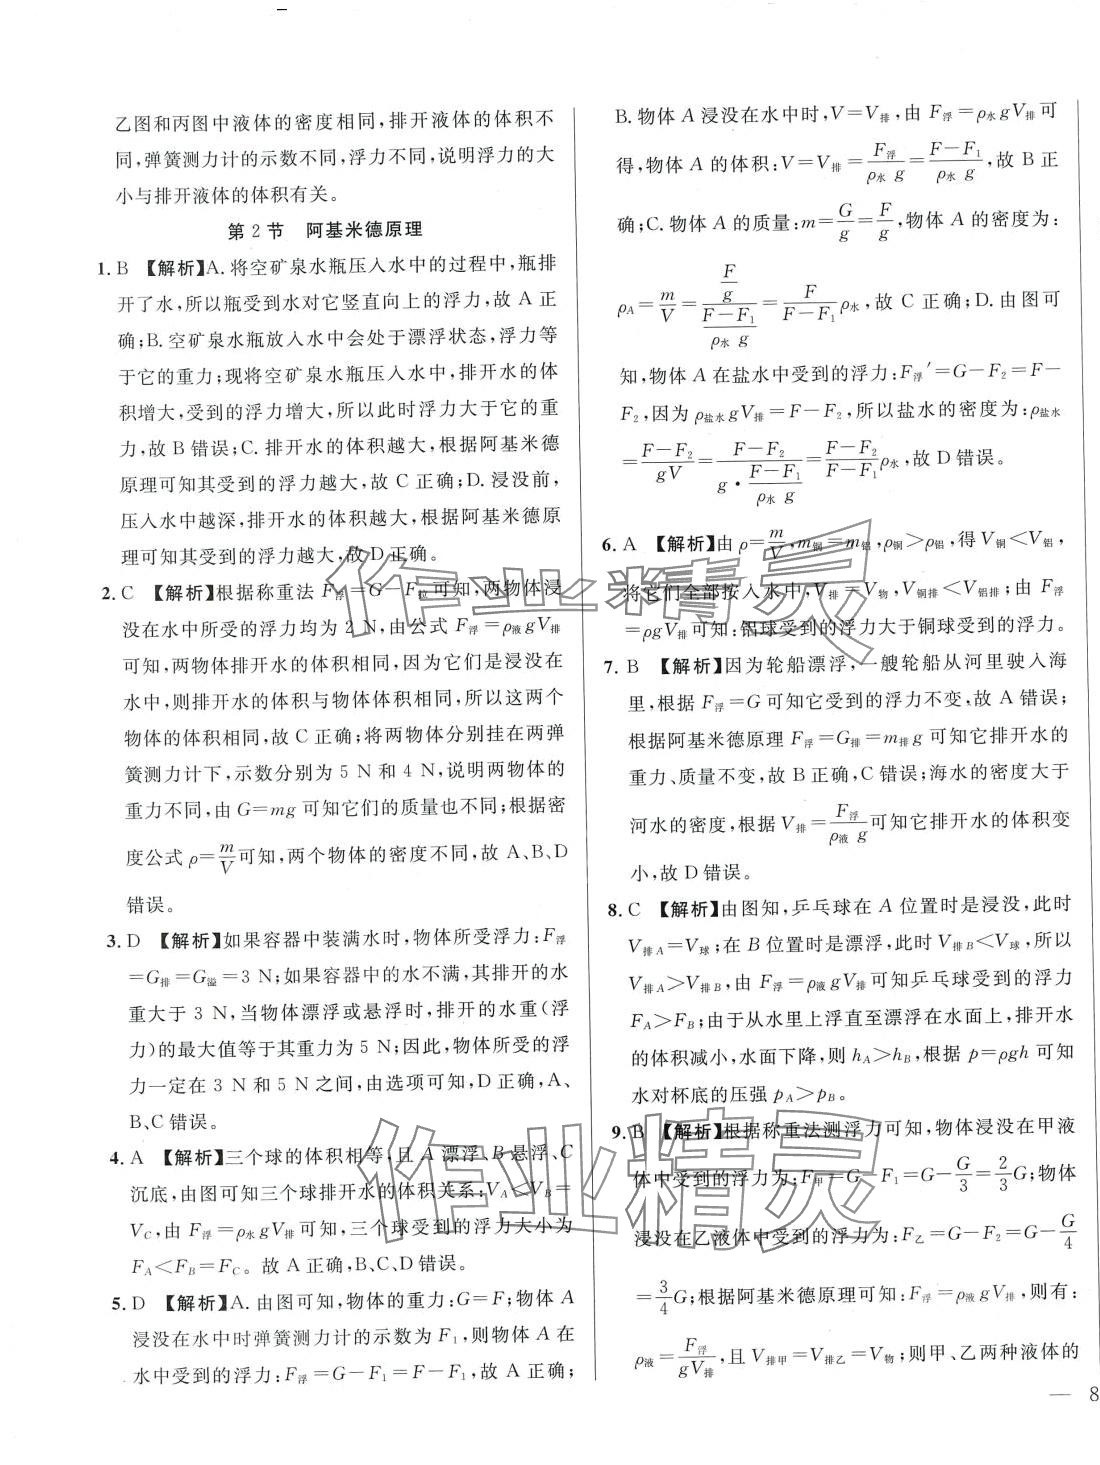 乙图和丙图中液体的密度相同,排开液体的体积不
同,弹簧测力计的示数不同,浮力不同,说明浮力的大
小与排开液体的体积有关。
第2节 阿基米德原理
1. B 【解析】A. 将空矿泉水瓶压入水中的过程中,瓶排
开了水,所以瓶受到水对它竖直向上的浮力,故 A 正
确;B. 空矿泉水瓶放入水中会处于漂浮状态,浮力等
于它的重力;现将空矿泉水瓶压入水中,排开水的体
积增大,受到的浮力增大,所以此时浮力大于它的重
力,故 B 错误;C. 排开水的体积越大,根据阿基米德
原理可知其受到的浮力越大,故 C 正确;D. 浸没前,
压入水中越深,排开水的体积越大,根据阿基米德原
理可知其受到的浮力越大,故 D 正确。
2. C 【解析】根据称重法 F浮=G-F拉可知,两物体浸
没在水中所受的浮力均为 2 N,由公式 F浮=ρ液gV排
可知,两物体排开水的体积相同,因为它们是浸没在
水中,则排开水的体积与物体体积相同,所以这两个
物体的体积相同,故 C 正确;将两物体分别挂在两弹
簧测力计下,示数分别为 5 N 和 4 N,说明两物体的
重力不同,由 G=mg 可知它们的质量也不同;根据密
度公式 ρ=m/V可知,两个物体的密度不同,故 A、B、D
错误。
3. D 【解析】如果容器中装满水时,物体所受浮力:F浮
=G排=G溢=3 N;如果容器中的水不满,其排开的水
重大于 3 N,当物体漂浮或悬浮时,排开的水重(浮
力)的最大值等于其重力为 5 N;因此,物体所受的浮
力一定在 3 N 和 5 N 之间,由选项可知,D 正确,A、
B、C 错误。
4. A 【解析】三个球的体积相等,且 A 漂浮、B 悬浮、C
沉底,由图可知三个球排开水的体积关系:VA<VB=
VC,由 F浮=ρ水gV排 可知,三个球受到的浮力大小为
FA<FB=FC。故 A 正确,B、C、D 错误。
5. D 【解析】A. 由图可知,物体的重力:G=F;物体 A
浸没在水中时弹簧测力计的示数为 F1,则物体 A 在
水中受到的浮力:F浮=G-F1=F-F1,故 A 正确;
B. 物体 A 浸没在水中时,V=V排,由 F浮=ρ水gV排可
得,物体 A 的体积:V=V排=F浮/(ρ水 g)=(F-F1)/(ρ水 g),故 B 正
确;C. 物体 A 的质量:m=G/g=F/g,物体 A 的密度为:
ρA=m/V=(F/g)/((F-F1)/(ρ水 g))=F/(F-F1)ρ水,故 C 正确;D. 由图可
知,物体 A 在盐水中受到的浮力:F浮′=G-F2=F-
F2,因为 ρ盐水gV排=F-F2,所以盐水的密度为:ρ盐水
=(F-F2)/(gV)=(F-F2)/(g·(F-F1)/(ρ水 g))=(F-F2)/(F-F1)ρ水,故 D 错误。
6. A 【解析】由 ρ=m/V,m铜=m铝,ρ铜>ρ铝,得 V铜<V铝,
将它们全部按入水中,V排=V物,V铜排<V铝排;由 F浮
=ρgV排可知:铝球受到的浮力大于铜球受到的浮力。
7. B 【解析】因为轮船漂浮,一艘轮船从河里驶入海
里,根据 F浮=G 可知它受到的浮力不变,故 A 错误;
根据阿基米德原理 F浮=G排=m排g 可知它排开水的
重力、质量不变,故 B 正确,C 错误;海水的密度大于
河水的密度,根据 V排=F浮/(ρ液 g)可知它排开水的体积变
小,故 D 错误。
8. C 【解析】由图知,乒乓球在 A 位置时是浸没,此时
V排A=V球;在 B 位置时是漂浮,此时 V排B<V球,所以
V排A>V排B,由 F浮=ρ液gV排可知乒乓球受到的浮力
FA>FB;由于从水里上浮直至漂浮在水面上,排开水
的体积减小,水面下降,则 hA>hB,根据 p=ρgh 可知
水对杯底的压强 pA>pB。
9. B 【解析】根据称重法测浮力可知,物体浸没在甲液
体中受到的浮力为:F甲=G-F1=G-G/3=2/3G;物体
浸没在乙液体中受到的浮力为:F乙=G-F2=G-G/4
=3/4G;根据阿基米德原理可知:F浮=ρ液gV排,则有:
ρ液=F浮/(gV排),且 V排甲=V排乙=V物;则甲、乙两种液体的
— 8
作业精灵
作业精灵